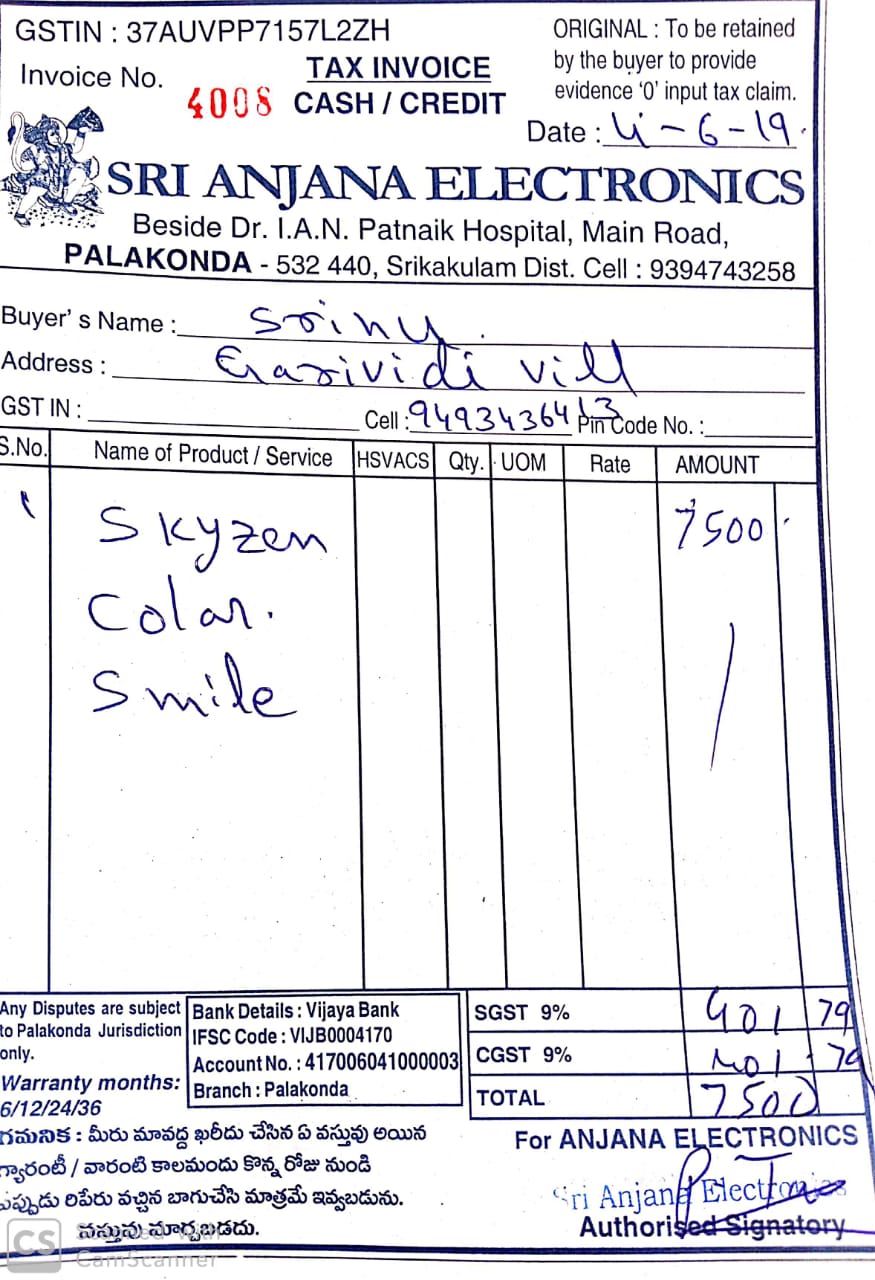 GSTIN : 37AUVPP7157L2ZH
ORIGINAL : To be retained
by the buyer to provide
evidence ‘0’ input tax claim.
Invoice No. 4008
TAX INVOICE
CASH / CREDIT
Date : 4-6-19.
SRI ANJANA ELECTRONICS
Beside Dr. I.A.N. Patnaik Hospital, Main Road,
PALAKONDA - 532 440, Srikakulam Dist. Cell : 9394743258
Buyer' s Name : Srinu.
Address : Garividi vill
GST IN :
Cell : 9493436413 Pin Code No. :
S.No. Name of Product / Service HSVACS Qty. UOM Rate AMOUNT
1 Skyzen 7500
Color.
Smile
Any Disputes are subject
to Palakonda Jurisdiction
only.
Warranty months:
6/12/24/36
Bank Details : Vijaya Bank
IFSC Code : VIJB0004170
Account No. : 417006041000003
Branch : Palakonda
SGST 9% 401 79
CGST 9% 401 79
TOTAL 7500
గమనిక : మీరు మావద్ద ఖరీదు చేసిన ఏ వస్తువు అయిన
గ్యారంటీ / వారంటి కాలమందు కొన్న రోజు నుండి
ఎప్పుడు రిపేరు వచ్చిన బాగుచేసి మాత్రమే ఇవ్వబడును.
వస్తువు మార్చబడదు.
For ANJANA ELECTRONICS
Sri Anjana Electronics
Authorised Signatory
CS Scanned with
CamScanner